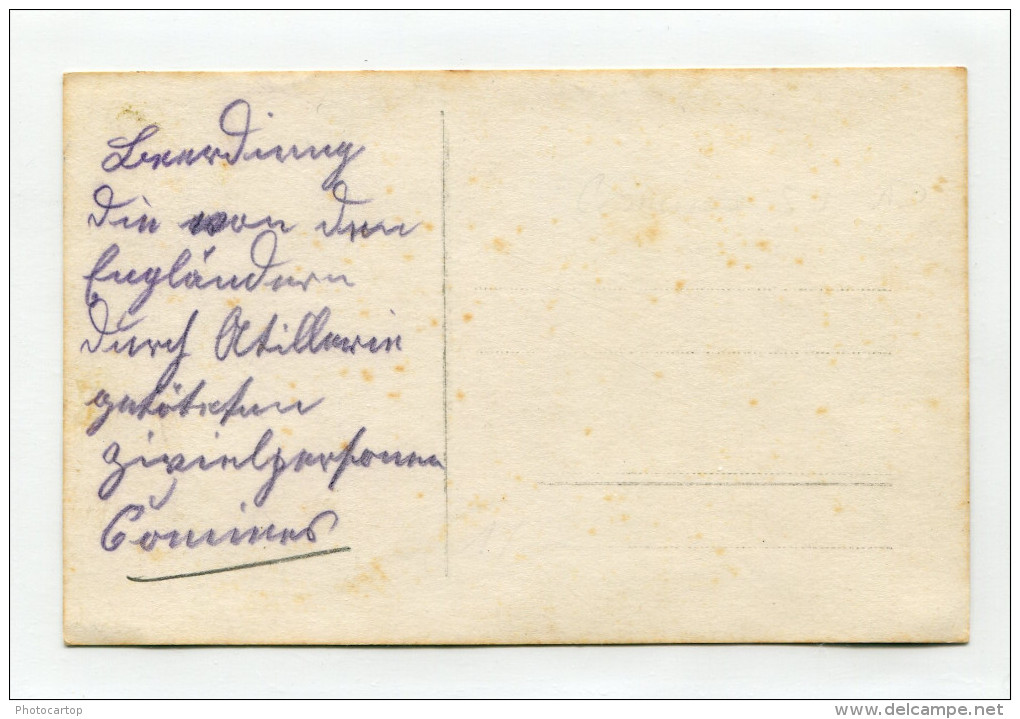 Beerdinng
die von den
Engländern
durch Atillerie
getöteten
zivielpersonen
Comines
Photocartop
www.delcampe.net